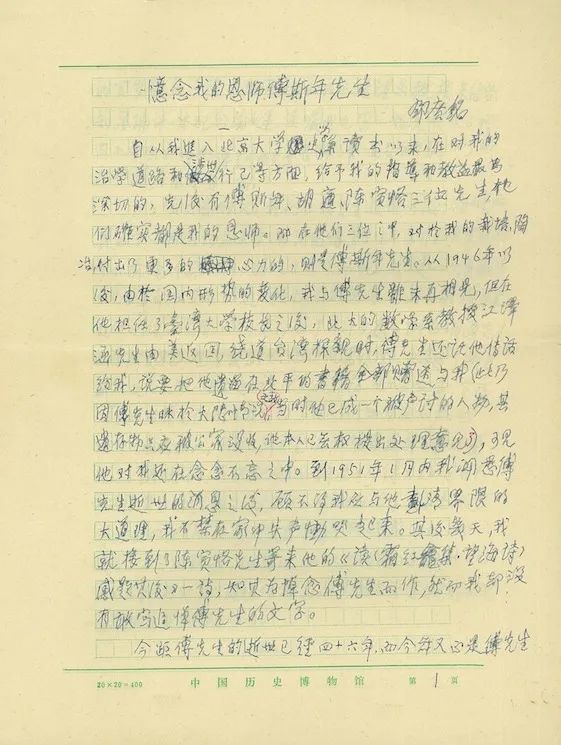 憶念我的恩师傅斯年先生
邓广铭
一
自从我進入北京大学史学系读书以来，在对我的
治学道路和立身行己等方面，给予我的指导和教益最为
深切的，先後有傅斯年、胡適、陈寅恪三位先生，他
们確实都是我的恩师。而在他们三位之中，对於我的栽培、陶
冶付出了更多的心力的，则是傅斯年先生。从1946年以
後，由於国内形势的变化，我与傅先生雖未再相見，但在
他担任了臺湾大学校长之後，北大的数学系教授江泽
涵先生由美返国，绕道台湾探親时，傅先生还托他传话
给我，说要把他遗留在北平的書籍全部赠送与我（此乃
因傅先生昧於大陸情况，当时他已成一个被声讨的人物，其
遗存物品应被公家没收，他本人已无权提出处理意见），可见
他对我还在念念不忘之中。到1951年1月内我闻悉傅
先生逝世的消息之後，顾不得我应与他劃清界限的
大道理，我不禁在家中失声恸哭起来。其後幾天，我
就接到了陈寅恪先生寄来他的《读〈霜红龕集·望海诗〉
感题其後》一诗，知其为悼念傅先生而作，然而我却没
有敢写追悼傅先生的文字。
今距傅先生的逝世已經四十六年，而今年又正是傅先生
20×20=400
中国历史博物馆
第1页